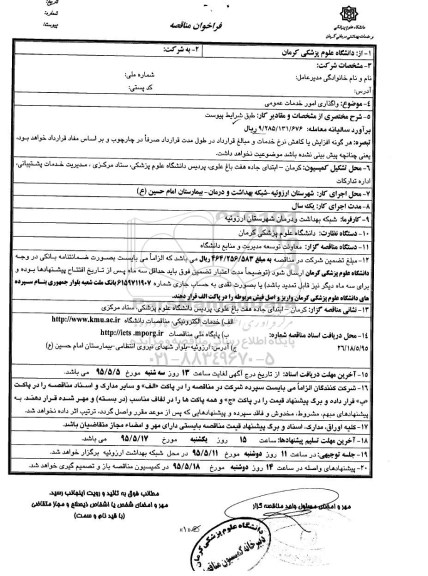 تاریخ:
شماره:
پیوست:
فراخوان مناقصه
دانشگاه علوم پزشکی
و خدمات بهداشتی درمانی کرمان
۱- از: دانشگاه علوم پزشکی کرمان
۲- به شرکت:
۳- مشخصات شرکت:
نام و نام خانوادگی مدیرعامل: شماره ملی:
آدرس: کد پستی:
۴- موضوع: واگذاری امور خدمات عمومی
۵- شرح مختصری از مشخصات و مقادیر کار: طبق شرایط پیوست
برآورد سالیانه معامله: ۹/۲۸۵/۱۳۱/۶۷۶ ریال
تبصره: هر گونه افزایش یا کاهش نرخ خدمات و مبالغ قرارداد در طول مدت قرارداد صرفاً در چارچوب و بر اساس مفاد قرارداد خواهد بود.
یعنی چنانچه پیش بینی نشده باشد موضوعیت نخواهد داشت.
۶- محل تشکیل کمیسیون: کرمان – ابتدای جاده هفت باغ علوی، پردیس دانشگاه علوم پزشکی، ستاد مرکزی ، مدیریت خدمات پشتیبانی،
اداره تدارکات
۷- محل اجرای کار: شهرستان ارزوئیه-شبکه بهداشت و درمان – بیمارستان امام حسین (ع)
۸- مدت اجرای کار: یک سال
۹- کارفرما: شبکه بهداشت ودرمان شهرستان ارزوئیه
۱۰- دستگاه نظارت: دانشگاه علوم پزشکی کرمان
۱۱- دستگاه مناقصه گزار: معاونت توسعه مدیریت و منابع دانشگاه
۱۲- مبلغ تضمین شرکت در مناقصه به مبلغ ۴۶۴/۲۵۶/۵۸۳ ریال می باشد که الزاماً می بایست بصورت ضمانتنامه بانکی در وجه
دانشگاه علوم پزشکی کرمان ارسال شود (توضیحاً مدت اعتبار تضمین فوق باید حداقل سه ماه پس از تاریخ افتتاح پیشنهادها بوده و
برای سه ماه دیگر نیز قابل تمدید باشد) یا بصورت نقدی به حساب جاری شماره ۶۱۵۹۷۱۱۹۰۷ بانک ملت شعبه بلوار جمهوری بنام سپرده
های دانشگاه علوم پزشکی کرمان واریز و اصل فیش مربوطه را در پاکت الف قرار دهند.
۱۳- نشانی مناقصه گزار: کرمان – ابتدای جاده هفت باغ علوی، پردیس دانشگاه علوم پزشکی، ستاد مرکزی
۱۴- محل دریافت اسناد مناقصه شماره:
۲۶/۱۸/۵/۹۵
الف) خدمات الکترونیکی، مناقصات دانشگاه http://www.kmu.ac.ir
ب) پایگاه ملی مناقصات http://iets.mporg.ir
ج) آدرس: ارزوئیه-بلوار شهدای نیروی انتظامی-بیمارستان امام حسین (ع)
۰۲۱-۸۸۳۴۹۶۷۰-۵
۱۵- آخرین مهلت دریافت اسناد: از تاریخ درج آگهی لغایت ساعت ۱۳ روز سه شنبه مورخ ۹۵/۵/۵ می باشد.
۱۶- شرکت کنندگان الزاماً می بایست سپرده شرکت در مناقصه را در پاکت «الف» و سایر مدارک و اسناد مناقصه را در پاکت
«ب» قرار داده و برگ پیشنهاد قیمت را در پاکت «ج» و همه پاکت ها را در لفاف مناسب (در بسته) و مهر شده قرار دهند. به
پیشنهادهای مبهم، مشروط، مخدوش و فاقد سپرده و پیشنهادهایی که پس از موعد مقرر واصل گردد، ترتیب اثر داده نخواهد شد.
۱۷- کلیه اوراق، مدارک، اسناد و برگ پیشنهاد قیمت مناقصه بایستی دارای مهر و امضاء مجاز متقاضیان باشد.
۱۸- آخرین مهلت تسلیم پیشنهادها: ساعت ۱۵ روز یکشنبه مورخ ۹۵/۵/۱۷ می باشد.
۱۹- جلسه توجیهی: در ساعت ۱۱ روز دوشنبه مورخ ۹۵/۵/۱۱ در محل شبکه بهداشت ارزوئیه برگزار خواهد شد.
۲۰- پیشنهادهای واصله در ساعت ۱۴ روز دوشنبه مورخ ۹۵/۵/۱۸ در کمیسیون مناقصه باز و تصمیم گیری خواهد شد.
مهر و امضای مسئول واحد مناقصه گزار
مطالب فوق به تائید و رویت اینجانب رسید.
مهر و امضای شخص یا اشخاص ذیصلاح و مجاز متقاضی
(با قید نام و سمت)
دانشگاه علوم پزشکی کرمان
دبیرخانه کمیسیون مناقصه